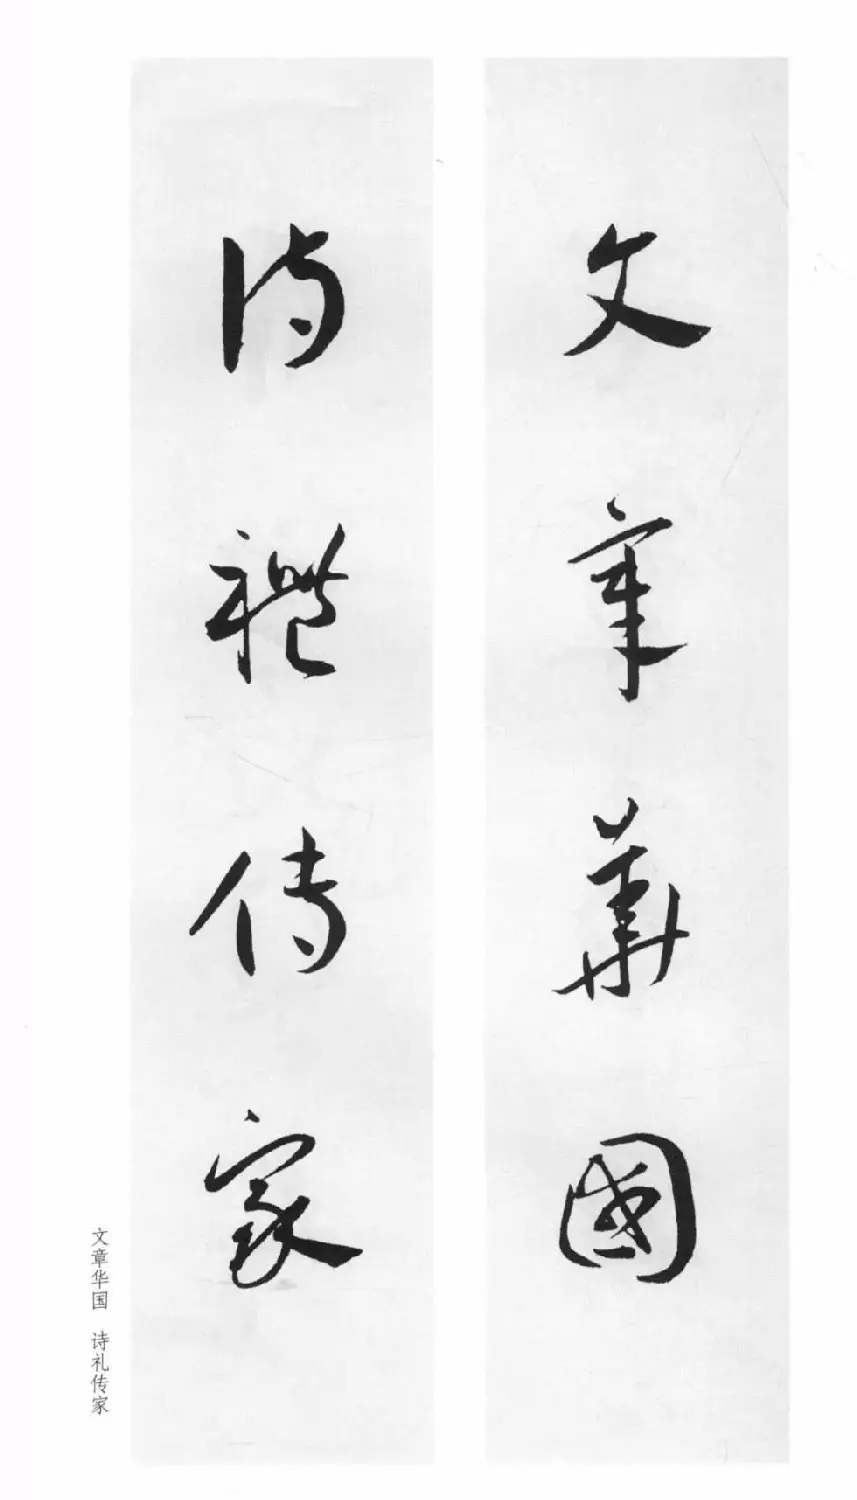 文章華國
詩禮傳家
文章华国 诗礼传家